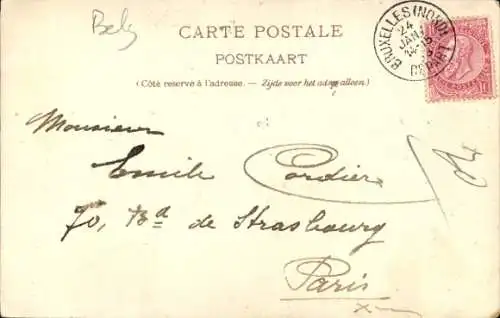 Belg
CARTE POSTALE
POSTKAART
(Côté réservé à l'adresse. — Zijde voor het adres alleen.)
BRUXELLES (NORD)
24
JANV
DEPART
Monsieur
Emile Cordier
70, Bd de Strasbourg
Paris